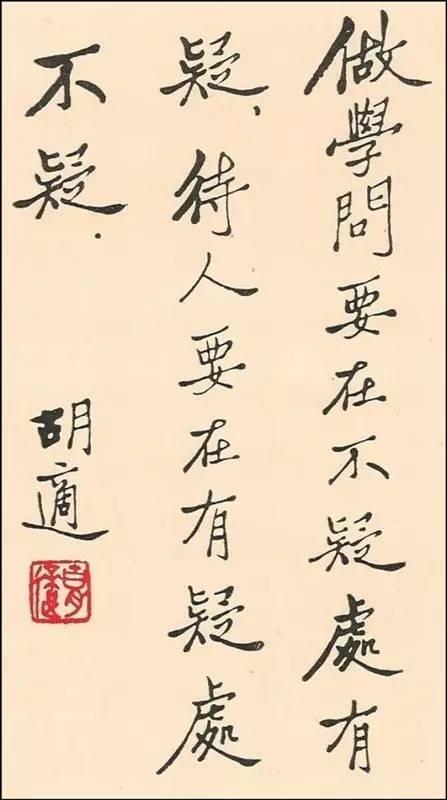 做學問要在不疑處有
疑，待人要在有疑處
不疑．
胡適